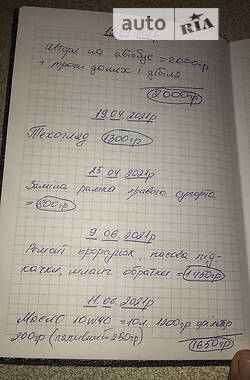 auto RIA
штори на автобус = 2000гр.
+ троси даних і дібіля
2000гр
19.04.2021р
Техогляд 1300гр
25.04.2021р
Заміна рамка правого супорта
= 800гр
9.06.2021р
Ремонт форсунок, насоса під
качки, шланг обратки = 1450гр
11.06.2021р
Масло 10W40 = 10л. 1200гр фільтр
200гр (паливний 250гр)
1650гр